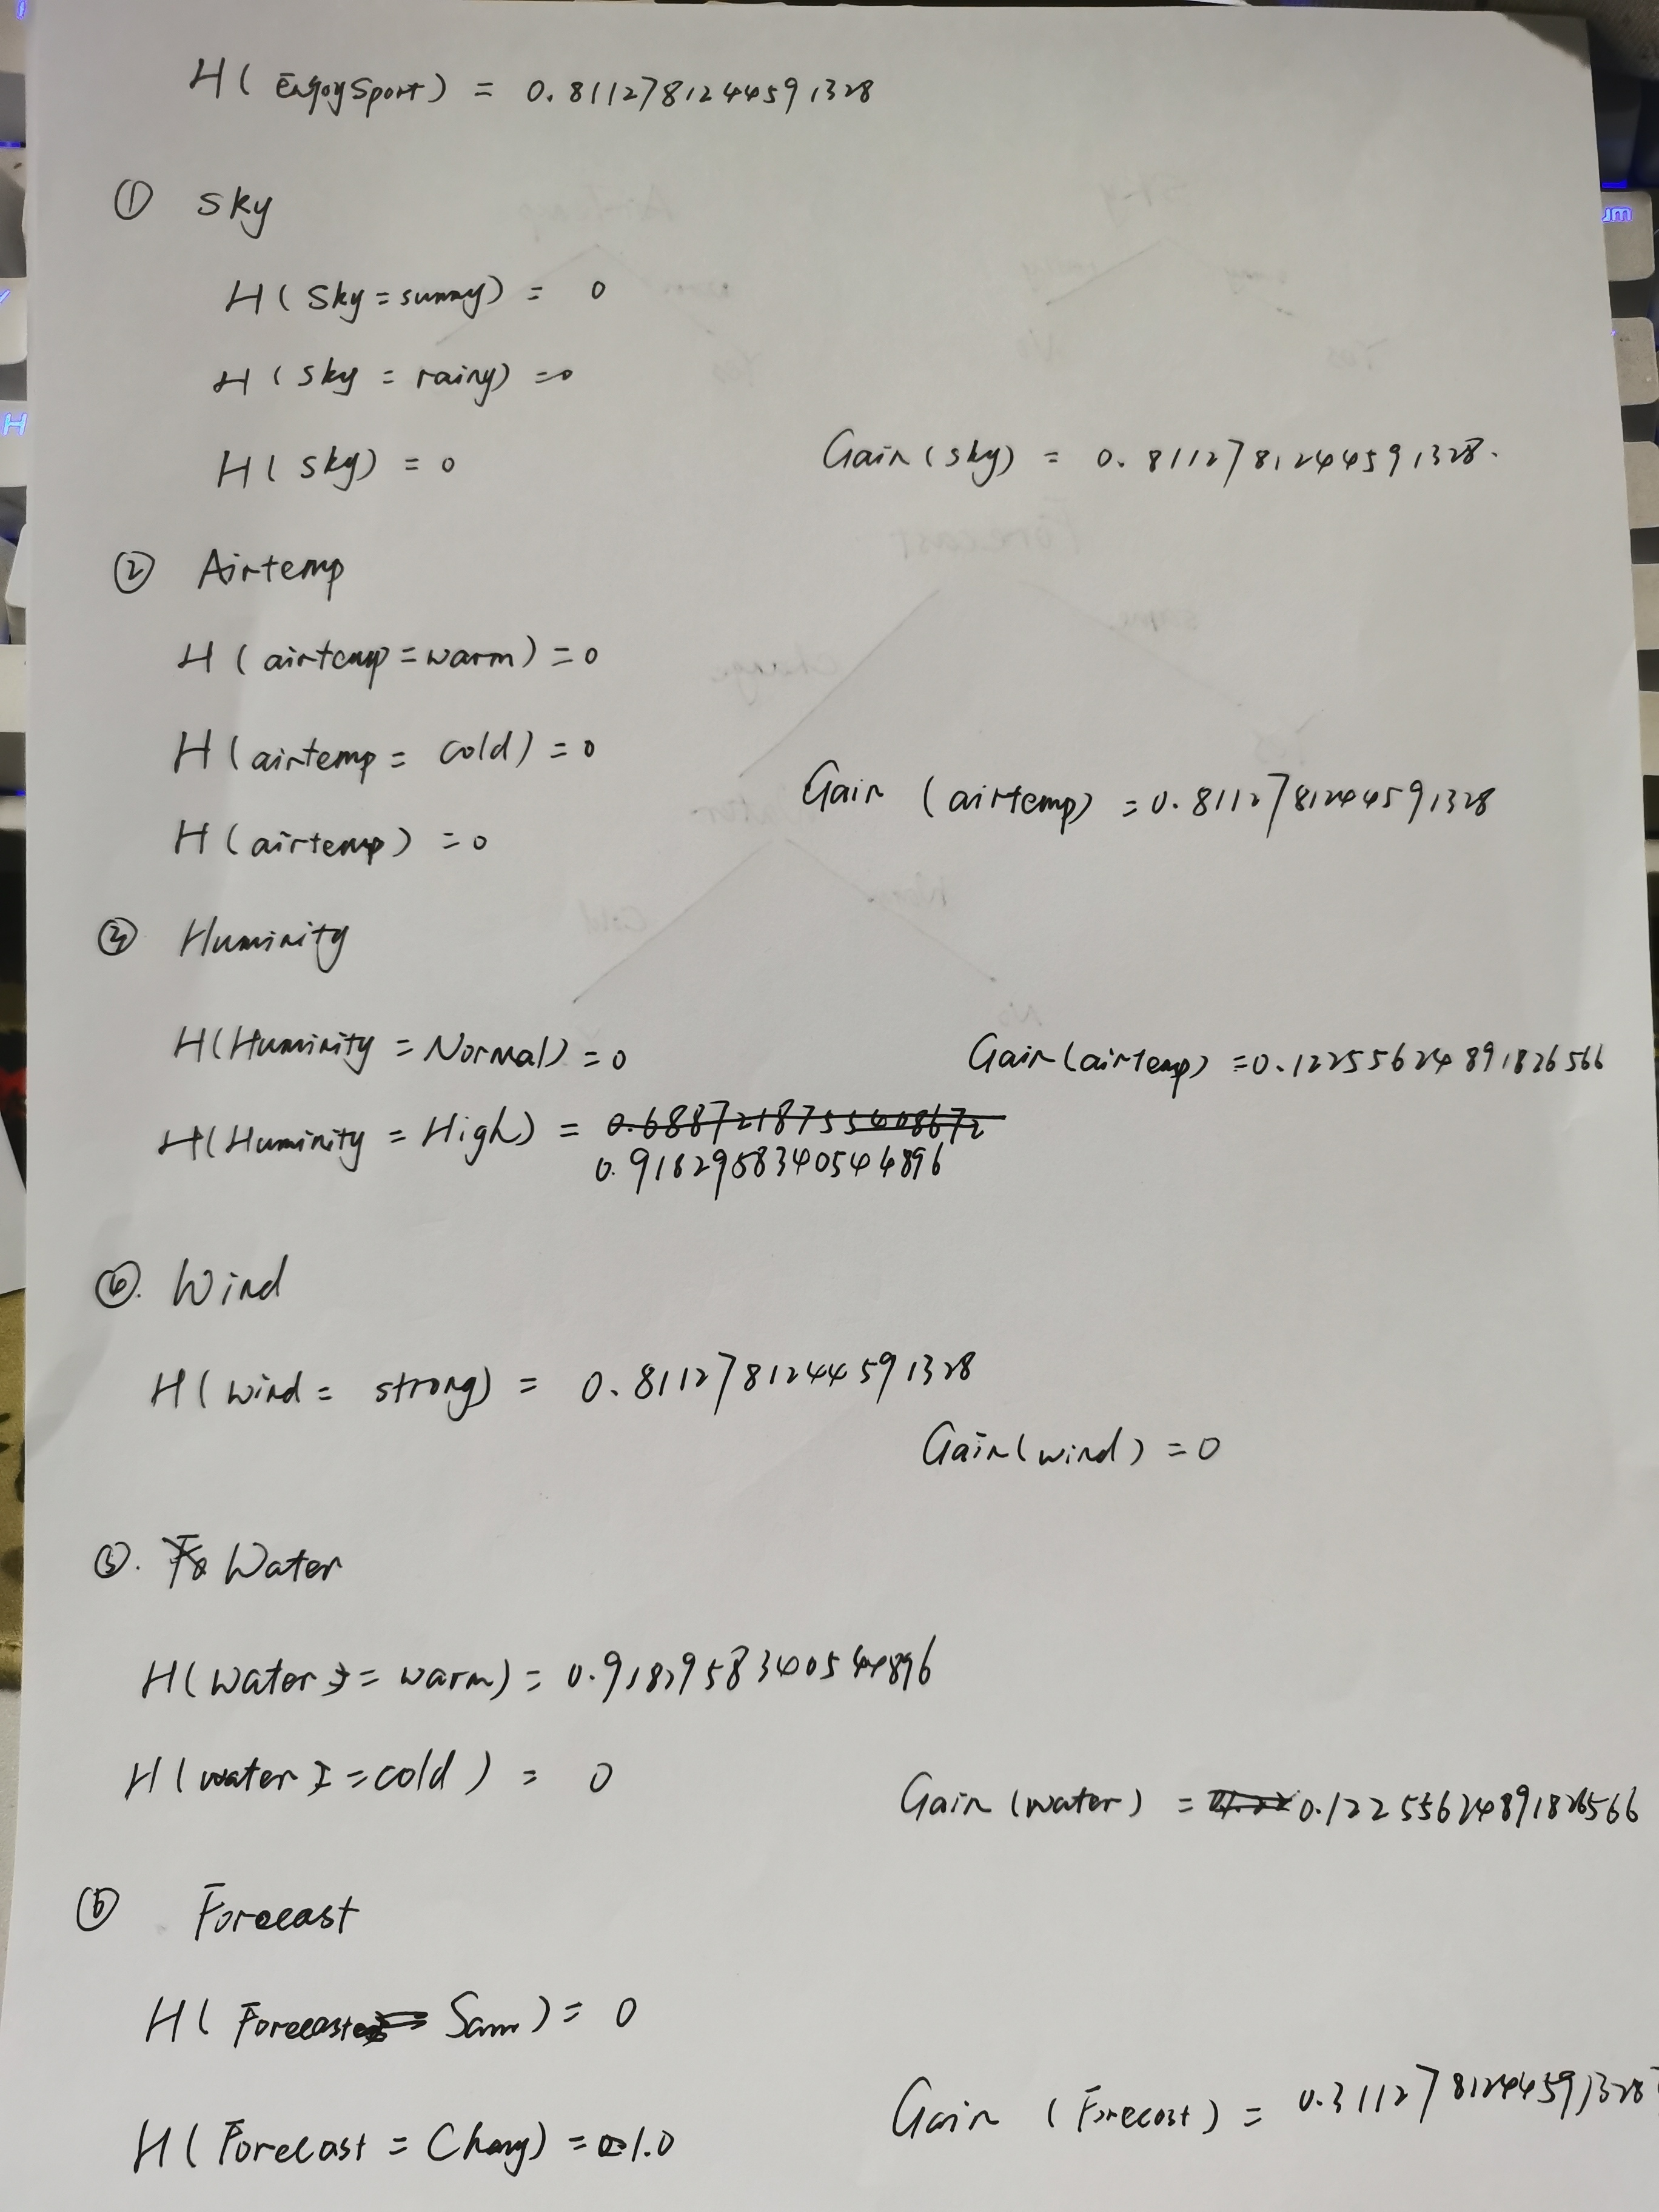 H( EnjoySport) = 0.8112781244591328
① Sky
H( Sky = sunny) = 0
H( Sky = rainy) = 0
H( Sky) = 0
Gain(sky) = 0.8112781244591328.
② Airtemp
H( airtemp = warm) = 0
H( airtemp = cold) = 0
Gain (airtemp) = 0.8112781244591328
H( airtemp) = 0
③ Huminity
H(Huminity = Normal) = 0
Gain(airtemp) = 0.12255624891826566
H(Huminity = High) = 0.6887218755408672
0.9182958340544896
④. Wind
H( wind = strong) = 0.8112781244591328
Gain(wind) = 0
⑤. Water
H(water = warm) = 0.9182958340544896
H(water = cold) = 0
Gain (water) = 0.12255624891826566
⑥ Forecast
H( Forecast = Sam) = 0
Gain (Forecast) = 0.3112781244591328
H( Forecast = Chang) = 1.0
um
H
Sky
Airtemp
No
Yes
Yes
Forecast
same
Change
Yes
Water
Cold
Warm
No